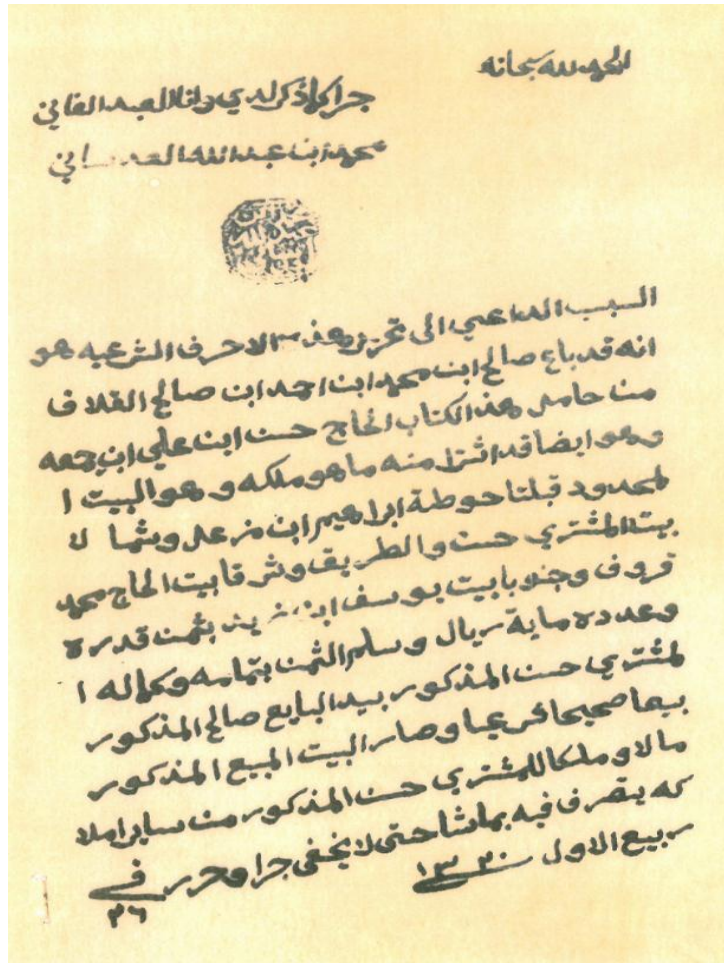 الحمد لله سبحانه
جرا كما ذكر لدي وانا العبد الفاني
محمد ابن عبد الله العدساني
السبب الداعي الى تحرير هذه الاحرف الشرعيه هو
انه قد باع صالح ابن محمد ابن احمد ابن صالح القلاف
من حامل هذ الكتاب الحاج حسن ابن علي ابن جمعه
وهو ايضا قد اشترا منه ما هو ملكه وهو البيت ا
لمحدود قبلتا حوطة ابراهيم ابن مزعل وشما لا
بيت المشتري حسن والطريق وشرقا بيت الحاج محمد
قروف وجنوبا بيت يوسف ابن بثمن قدره
وعدده ماية ريال وسلم الثمن بتمامه وكماله ا
لمشتري حسن المذكور بيد البايع صالح المذكور
بيعا صحيحا شرعيا وصار البيت المبيع المذكور
مالا وملكا للمشتري حسن المذكور من ساير املا
كه يتصرف فيه بما شا حتى لا يخفى جرا وحرر في
٢٦ ربيع الاول ١٣٢٠